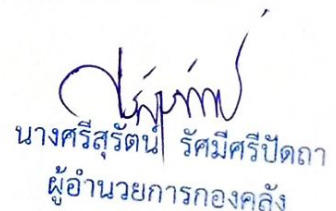 นางศรีสุรัตน์ รัศมีศรีปัดถา
ผู้อำนวยการกองคลัง